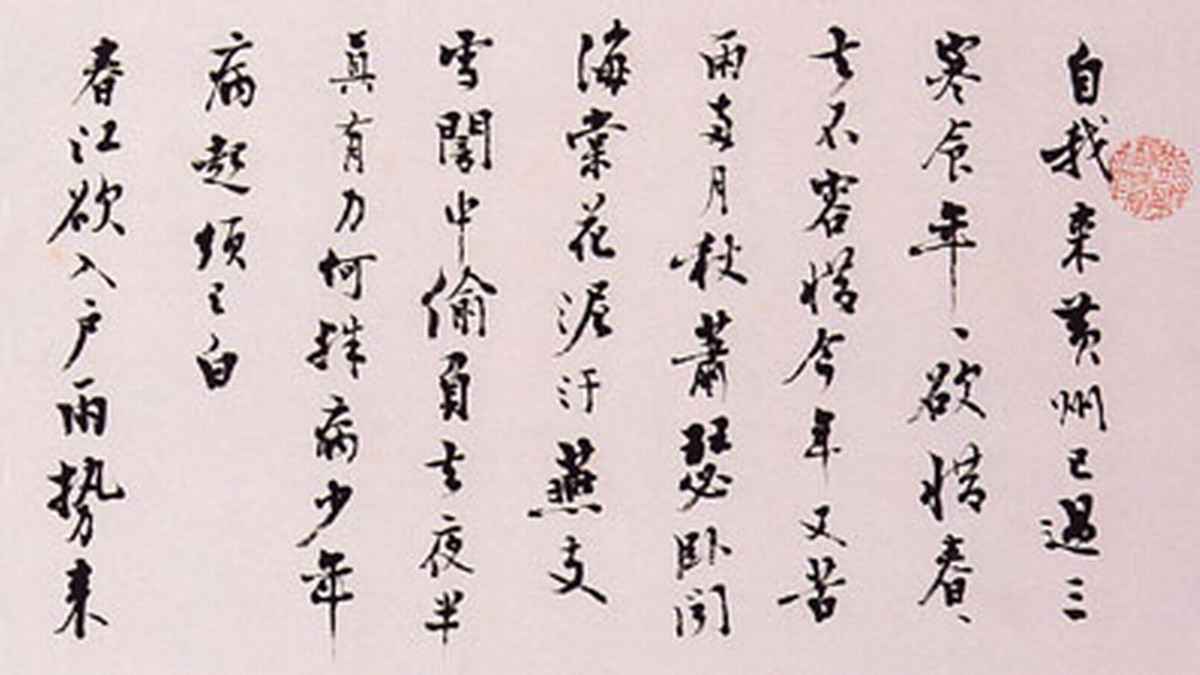 自我来黄州已過三
寒食年、欲惜春、
去不容惜今年又苦
雨兩月秋蕭瑟卧聞
海棠花泥汙燕支
雪闇中偷負去夜半
真有力何殊病少年
病起須已白
春江欲入户雨勢来